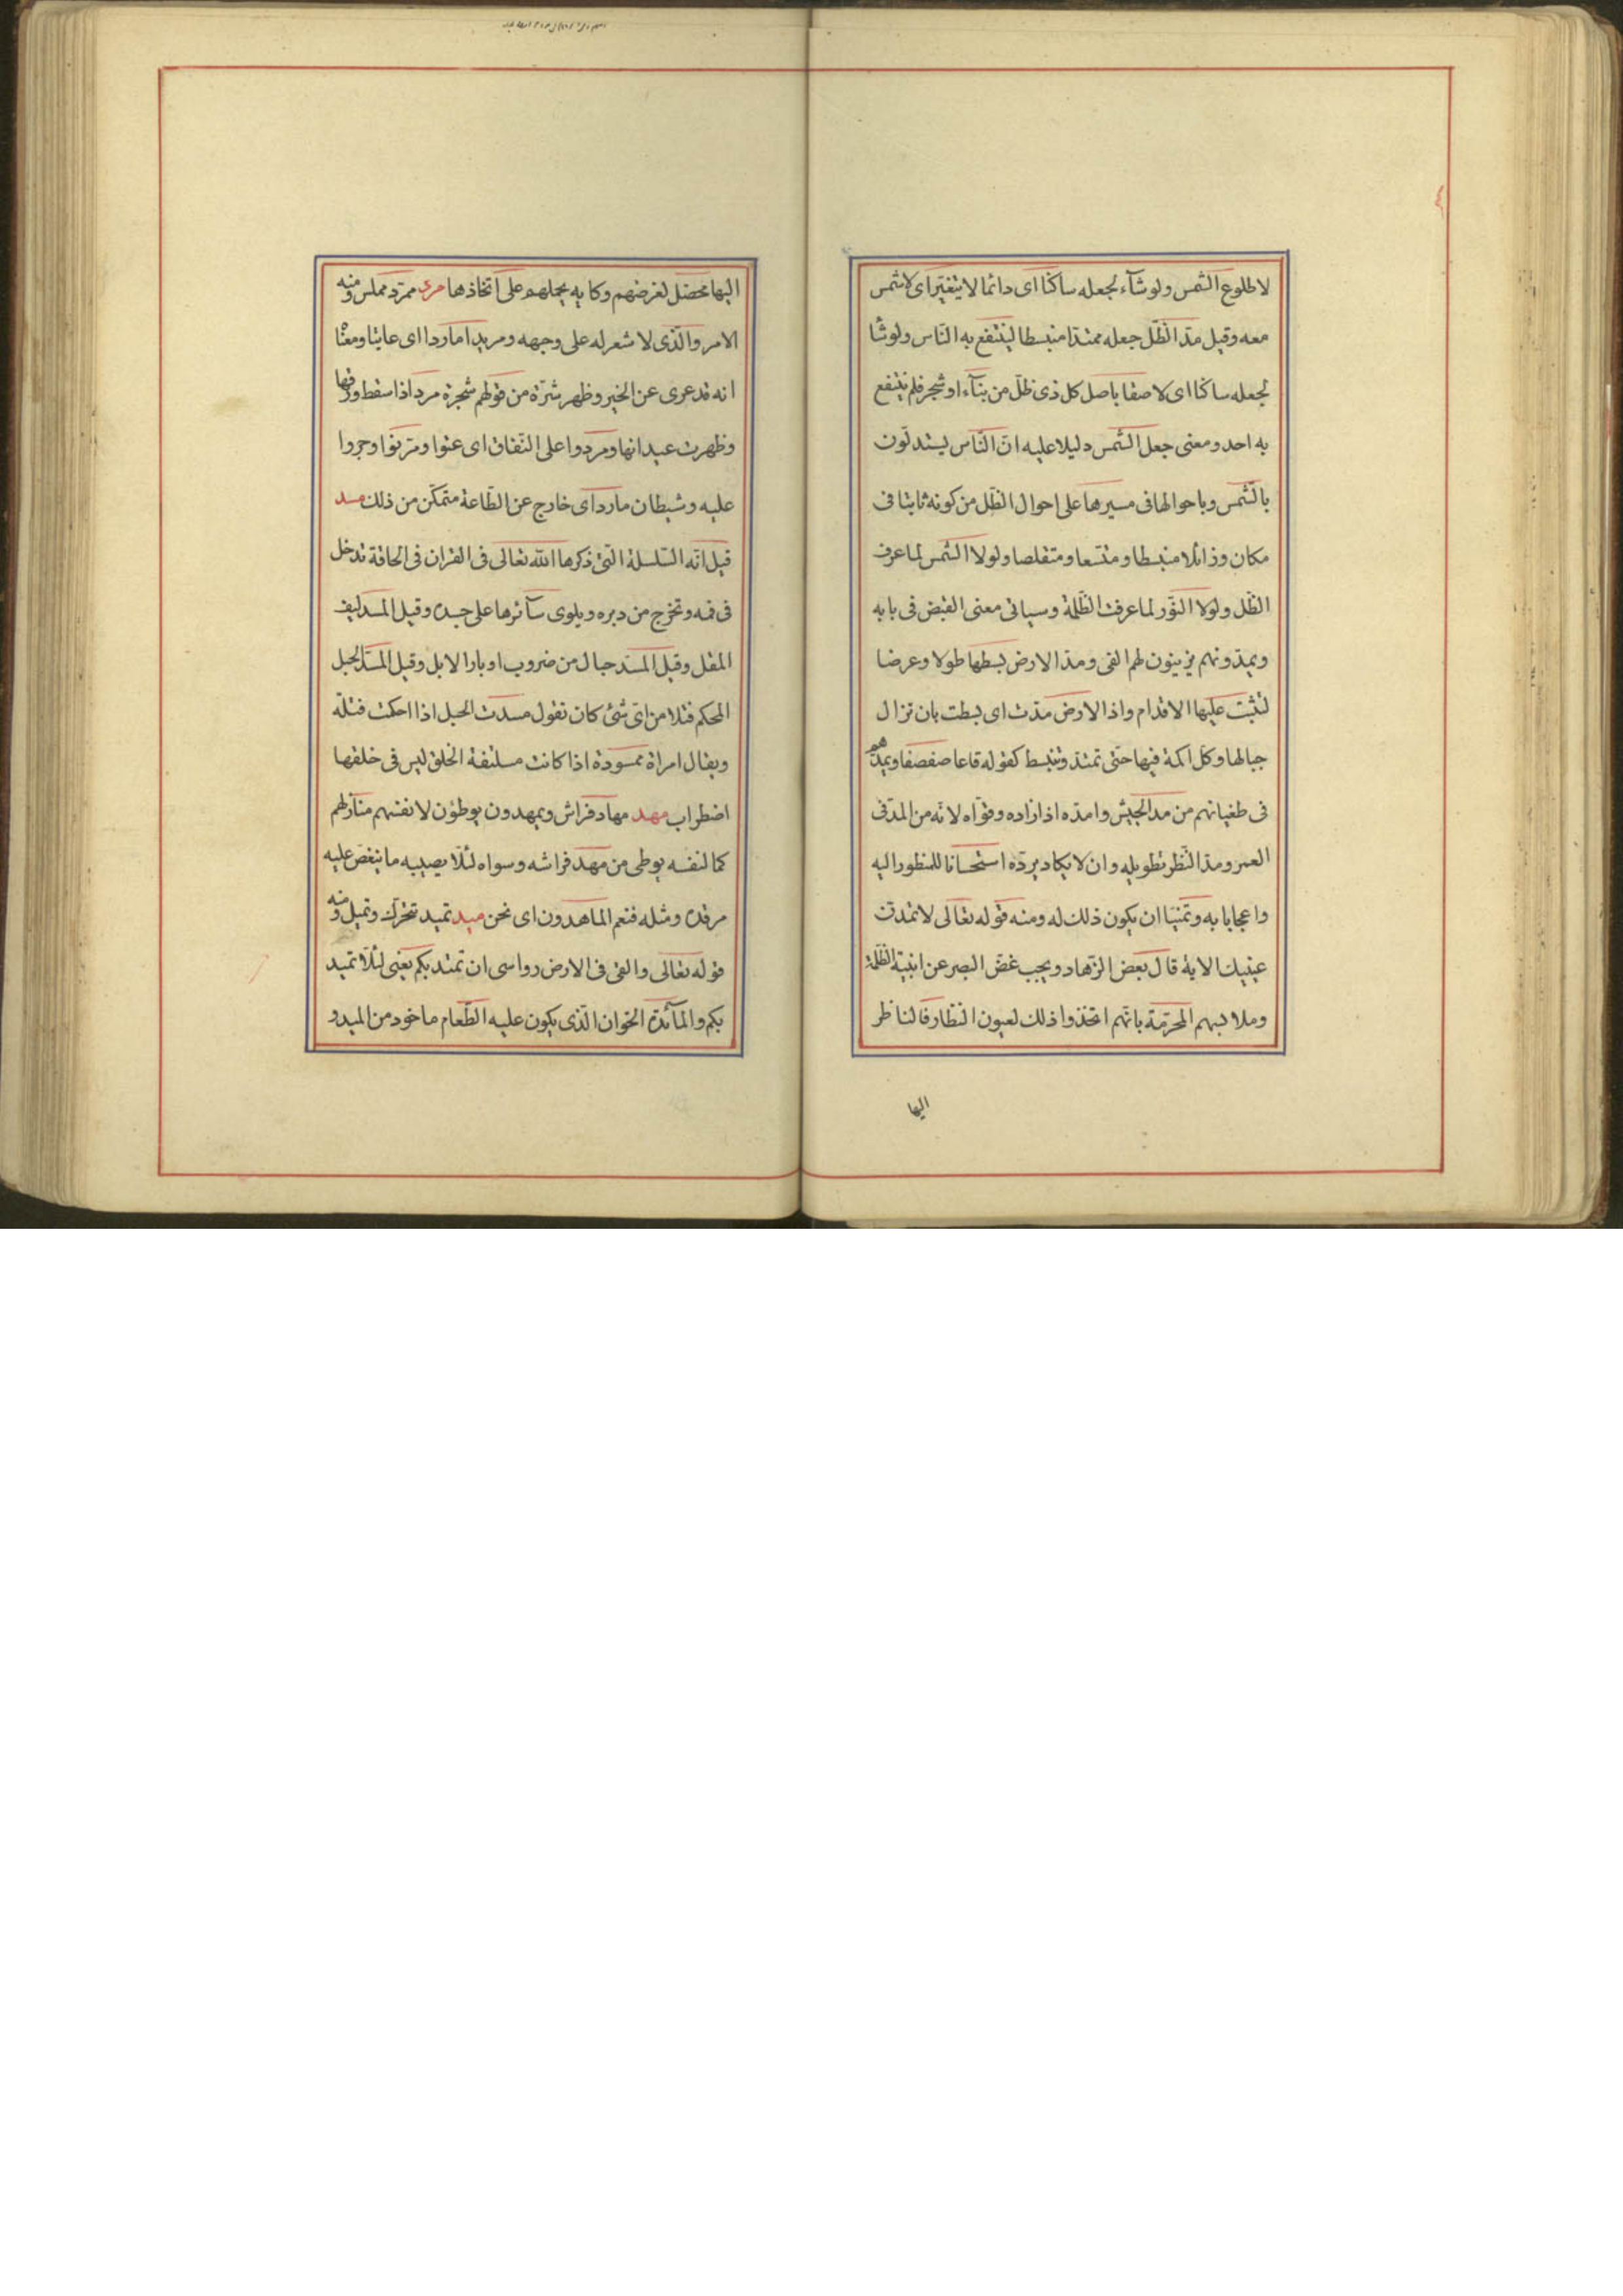 لا طلوع الشمس ولو شآء لجعله ساكنا اى دائما لا يتغير اى لا شمس
معه وقيل مدّ الظّل جعله ممتدا منبسطا لينتفع به النّاس ولو شا
لجعله ساكنا اى لاصقا باصل كل ذى ظلّ من بنآء او شجر فلم ينتفع
به احد ومعنى جعل الشّمس دليلا عليه انّ النّاس يستدلّون
بالشّمس وباحوالها فى مسيرها على احوال الظّل من كونه ثابتا فى
مكان وزائلا منبسطا ومتّسعا ومتقلصا ولولا الشّمس لما عرف
الظّل ولولا النّور لما عرفت الظّلمة وسياتى معنى القبض فى بابه
ويمدّونهم يزيّنون لهم الغى ومدّ الارض بسطها طولا وعرضا
لتثبت عليها الاقدام واذا الارض مدّت اى بسطت بان تزال
جبالها وكل اكمة فيها حتّى تمتدّ وتنبسط كقوله قاعا صفصفا ويمدّهم
فى طغيانهم من مدّ الجيش وامدّه اذا زاده وقوّاه لانّه من المدّ فى
العمر ومدّ النّظر تطويله وان لا يكاد يردّه استحسانا للمنظور اليه
واعجابا به وتمنّيا ان يكون ذلك له ومنه قوله تعالى لا تمدّن
عينيك الاية قال بعض الزّهاد ويجب غضّ البصر عن ابنية الظّلمة
وملابسهم المحرّمة بانّهم اتخذوا ذلك لعيون النظّار فالناظر
اليها
اليها محصّل لغرضهم وكانه يحملهم على اتخاذها مرد ممرّد مملس ومنه
الامرد الّذى لا شعر له على وجهه ومريدا ماردا اى عاتيا ومعناه
انه قد عرى عن الخير وظهر شرّه من قولهم شجرة مرداذا سقط ورقها
وظهرت عيدانها ومردوا على النّفاق اى عتوا ومرنوا وجروا
عليه وشيطان مارد اى خارج عن الطّاعة متمكّن من ذلك مسد
قيل انّه السّلسلة الّتى ذكرها اللّه تعالى فى القران فى الحاقة تدخل
فى فمه وتخرج من دبره ويلوى سآئرها على جسده وقيل المسد ليف
المقل وقيل المسد حبال من ضروب اوبار الابل وقيل المسد الحبل
المحكم فتلا من اىّ شئ كان تقول مسدت الحبل اذا احكمت فتله
ويقال امراة ممسودة اذا كانت ملتفة الخلق ليس فى خلقها
اضطراب مهد مهاد فراش ويمهدون يوطؤن لانفسهم منازلهم
كما لنفسه يوطى من مهد فراشه وسواه لئلّا يصيبه ما ينغص عليه
مرقده ومثله فنعم الماهدون اى نحن ميد تميد تتحرّك وتميل ومنه
قوله تعالى والقى فى الارض رواسى ان تميد بكم يعنى لئلّا تميد
بكم والمآئدة الخوان الّذى يكون عليه الطّعام ماخوذ من الميد و